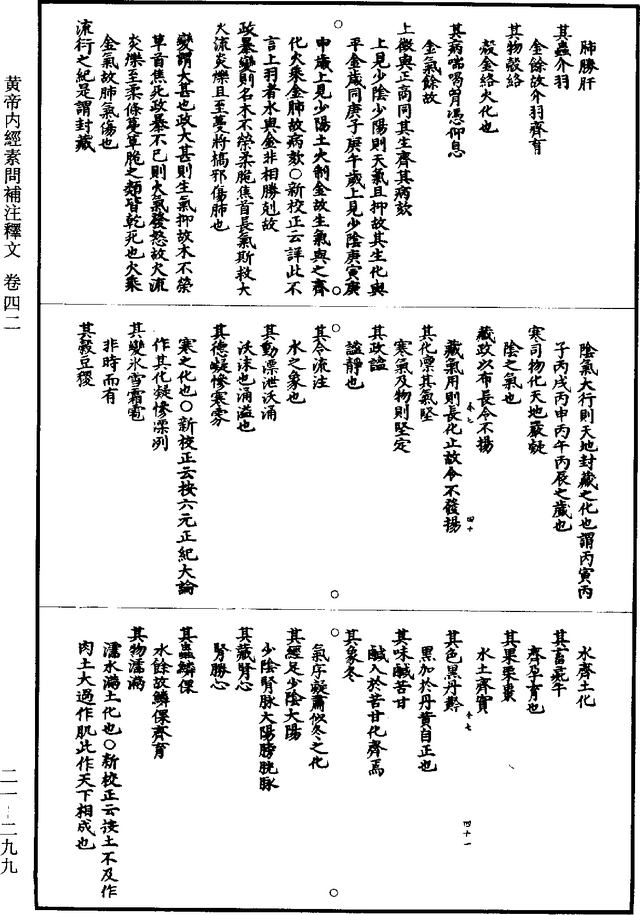 肺勝肝
其蟲介羽
金餘故介羽齊育
其物殼絡
殼金絡火化也
其病喘喝胷憑仰息
金氣餘故
上徵與正商同其生齊其病欬
上見少陰少陽則天氣且抑故其生化與
平金歲同庚子庚午歲上見少陰庚寅庚
申歲上見少陽土火制金故生氣與之齊
化火乘金肺故病欬○新校正云詳此不
言上羽者水與金非相勝剋故
政暴變則名木不榮柔脆焦首長氣斯救大
火流炎爍且至蔓將槁邪傷肺也
變謂大甚也政大甚則生氣抑故木不榮
草首焦死政暴不已則火氣發怒故火流
炎爍至柔條蔓草脆之類皆乾死也火乘
金氣故肺氣傷也
流衍之紀是謂封藏
陰氣大行則天地封藏之化也謂丙寅丙
子丙戌丙申丙午丙辰之歲也
寒司物化天地嚴凝
陰之氣也
藏政以布長令不揚
藏氣用則長化止故令不發揚
其化凛其氣堅
寒氣及物則堅定
其政謐
謐靜也
其令流注
水之象也
其動漂泄沃涌
沃沫也涌溢也
其德凝慘寒雰
寒之化也○新校正云按六元正紀大論
作其化凝慘凓冽
其變氷雪霜雹
非時而有
其穀豆稷
水齊土化
其畜彘牛
齊孕育也
其果栗棗
水土齊實
其色黑丹黅
黑加於丹黄自正也
其味鹹苦甘
鹹入於苦甘化齊焉
其象冬
氣序凝肅似冬之化
其經足少陰太陽
少陰腎脉太陽膀胱脉
其藏腎心
腎勝心
其蟲鱗倮
水餘故鱗倮齊育
其物濡滿
濡水滿土化也○新校正云按土不及作
肉土太過作肌此作天下相成也
黄帝内經素問補注釋文 卷四二
二一－二九九
四十
四十一